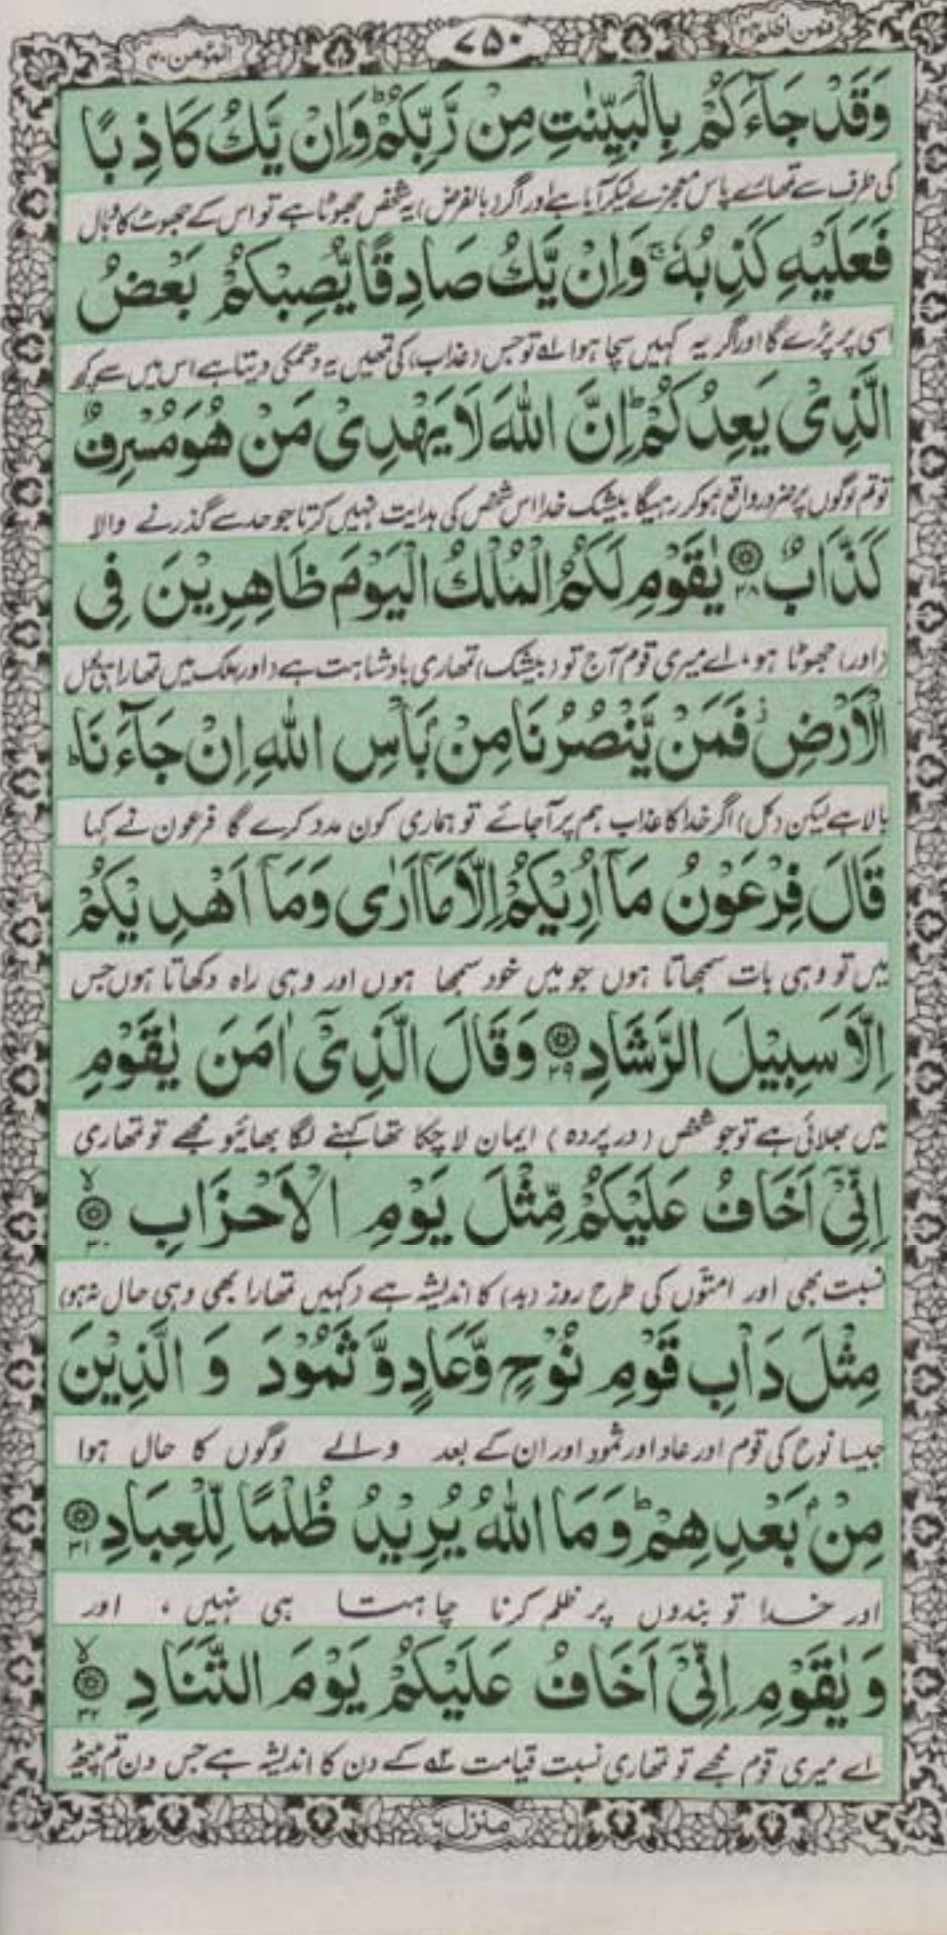 فمن اظلم ۲۴
۷۵۰
المؤمن ۴۰
وَقَدْ جَآءَكُمْ بِالْبَيِّنٰتِ مِنْ رَّبِّكُمْ ؕ وَاِنْ يَّكُ كَاذِبًا
کی طرف سے تمھارے پاس معجزے لیکر آیا ہے اور اگر (بالفرض) یہ شخص جھوٹا ہے تو اس کے جھوٹ کا وبال
فَعَلَيْهِ كَذِبُهٗ ۚ وَاِنْ يَّكُ صَادِقًا يُّصِبْكُمْ بَعْضُ
اسی پر پڑے گا اور اگر یہ کہیں سچا ہوا تو جس (عذاب) کی تمھیں یہ دھمکی دیتا ہے اس میں سے کچھ
الَّذِىْ يَعِدُكُمْ ؕ اِنَّ اللّٰهَ لَا يَهْدِىْ مَنْ هُوَ مُسْرِفٌ
تو تم لوگوں پر ضرور واقع ہو کر رہیگا بیشک خدا اس شخص کی ہدایت نہیں کرتا جو حد سے گذرنے والا
كَذَّابٌ ۲۸ يٰقَوْمِ لَكُمُ الْمُلْكُ الْيَوْمَ ظَاهِرِيْنَ فِى
(اور) جھوٹا ہو، اے میری قوم آج تو (بیشک) تمھاری بادشاہت ہے (اور) ملک میں تمھارا ہی بول
الْاَرْضِ ز فَمَنْ يَّنْصُرُنَا مِنْۢ بَاْسِ اللّٰهِ اِنْ جَآءَنَا ؕ
بالا ہے لیکن (کل) اگر خدا کا عذاب ہم پر آجائے تو ہماری کون مدد کرے گا فرعون نے کہا
قَالَ فِرْعَوْنُ مَآ اُرِيْكُمْ اِلَّا مَآ اَرٰى وَمَآ اَهْدِيْكُمْ
میں تو وہی بات سمجھاتا ہوں جو میں خود سمجھا ہوں اور وہی راہ دکھاتا ہوں جس
اِلَّا سَبِيْلَ الرَّشَادِ ۲۹ وَقَالَ الَّذِىْٓ اٰمَنَ يٰقَوْمِ
میں بھلائی ہے تو جو شخص (درپردہ) ایمان لا چکا تھا کہنے لگا بھائیو مجھے تو تمھاری
اِنِّىْٓ اَخَافُ عَلَيْكُمْ مِّثْلَ يَوْمِ الْاَحْزَابِ ۳۰
نسبت بھی اور امتوں کی طرح روز (بد) کا اندیشہ ہے (کہیں تمھارا بھی وہی حال نہ ہو)
مِثْلَ دَاْبِ قَوْمِ نُوْحٍ وَّعَادٍ وَّثَمُوْدَ وَالَّذِيْنَ
جیسا نوح کی قوم اور عاد اور ثمود اور ان کے بعد والے لوگوں کا حال ہوا
مِنْۢ بَعْدِهِمْ ؕ وَمَا اللّٰهُ يُرِيْدُ ظُلْمًا لِّلْعِبَادِ ۳۱
اور خدا تو بندوں پر ظلم کرنا چاہتا ہی نہیں، اور
وَيٰقَوْمِ اِنِّىْٓ اَخَافُ عَلَيْكُمْ يَوْمَ التَّنَادِ ۳۲
اے میری قوم مجھے تو تمھاری نسبت قیامت کے دن کا اندیشہ ہے جس دن تم پیٹھ
منزل ۶